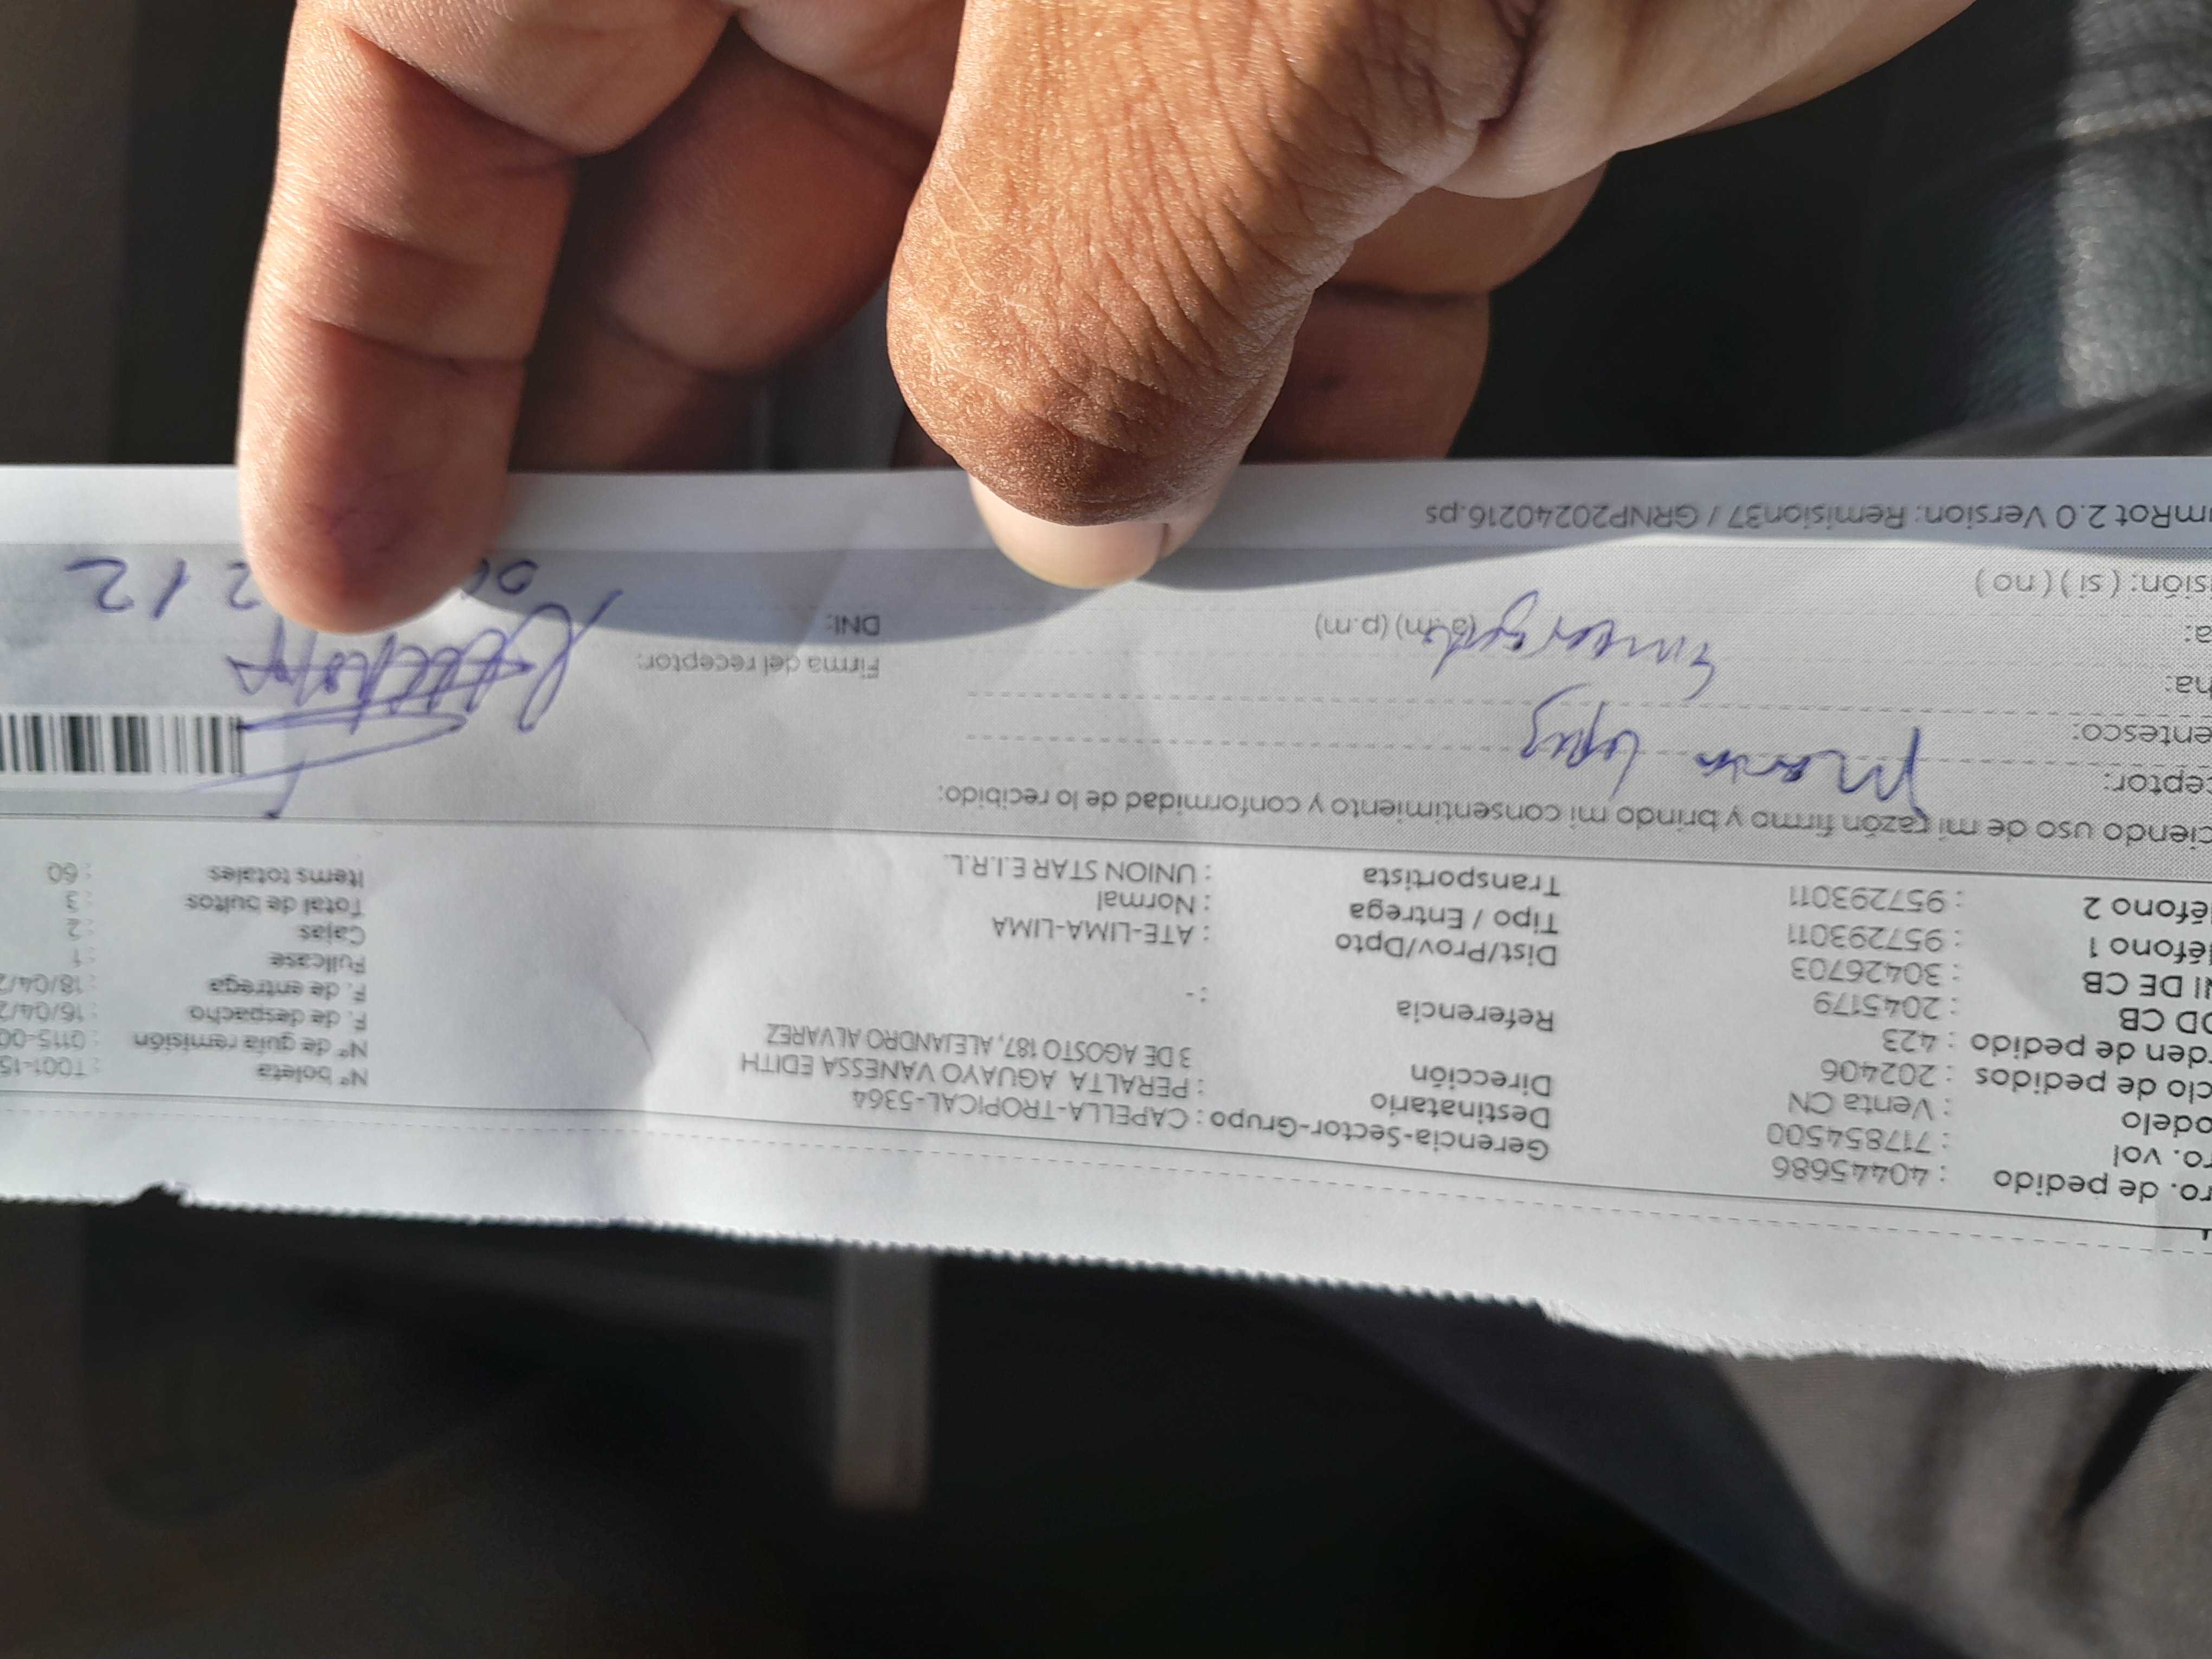 ro. de pedido : 40445686
ro. vol : 717854500
odelo : Venta CN
clo de pedidos : 202406
rden de pedido : 423
OD CB : 2045179
NI DE CB : 30426703
léfono 1 : 957293011
léfono 2 : 957293011
Gerencia-Sector-Grupo : CAPELLA-TROPICAL-5364
Destinatario : PERALTA AGUAYO VANESSA EDITH
Dirección 3 DE AGOSTO 187, ALEJANDRO ALVAREZ
Referencia : -
Dist/Prov/Dpto : ATE-LIMA-LIMA
Tipo / Entrega : Normal
Transportista : UNION STAR E.I.R.L.
Nº boleta : T001-15
Nº de guía remisión : 0115-00
F. de despacho : 16/04/2
F. de entrega : 18/04/2
Fullcase : 1
Cajas : 2
Total de bultos : 3
Items totales : 60
ciendo uso de mi razón firmo y brindo mi consentimiento y conformidad de lo recibido:
ceptor: Lopez
entesco:
ha:
a: (a.m) (p.m)
sión: ( si ) ( no )
Firma del receptor:
DNI: 212
mRot 2.0 Version: Remision37 / GRNP20240216.ps